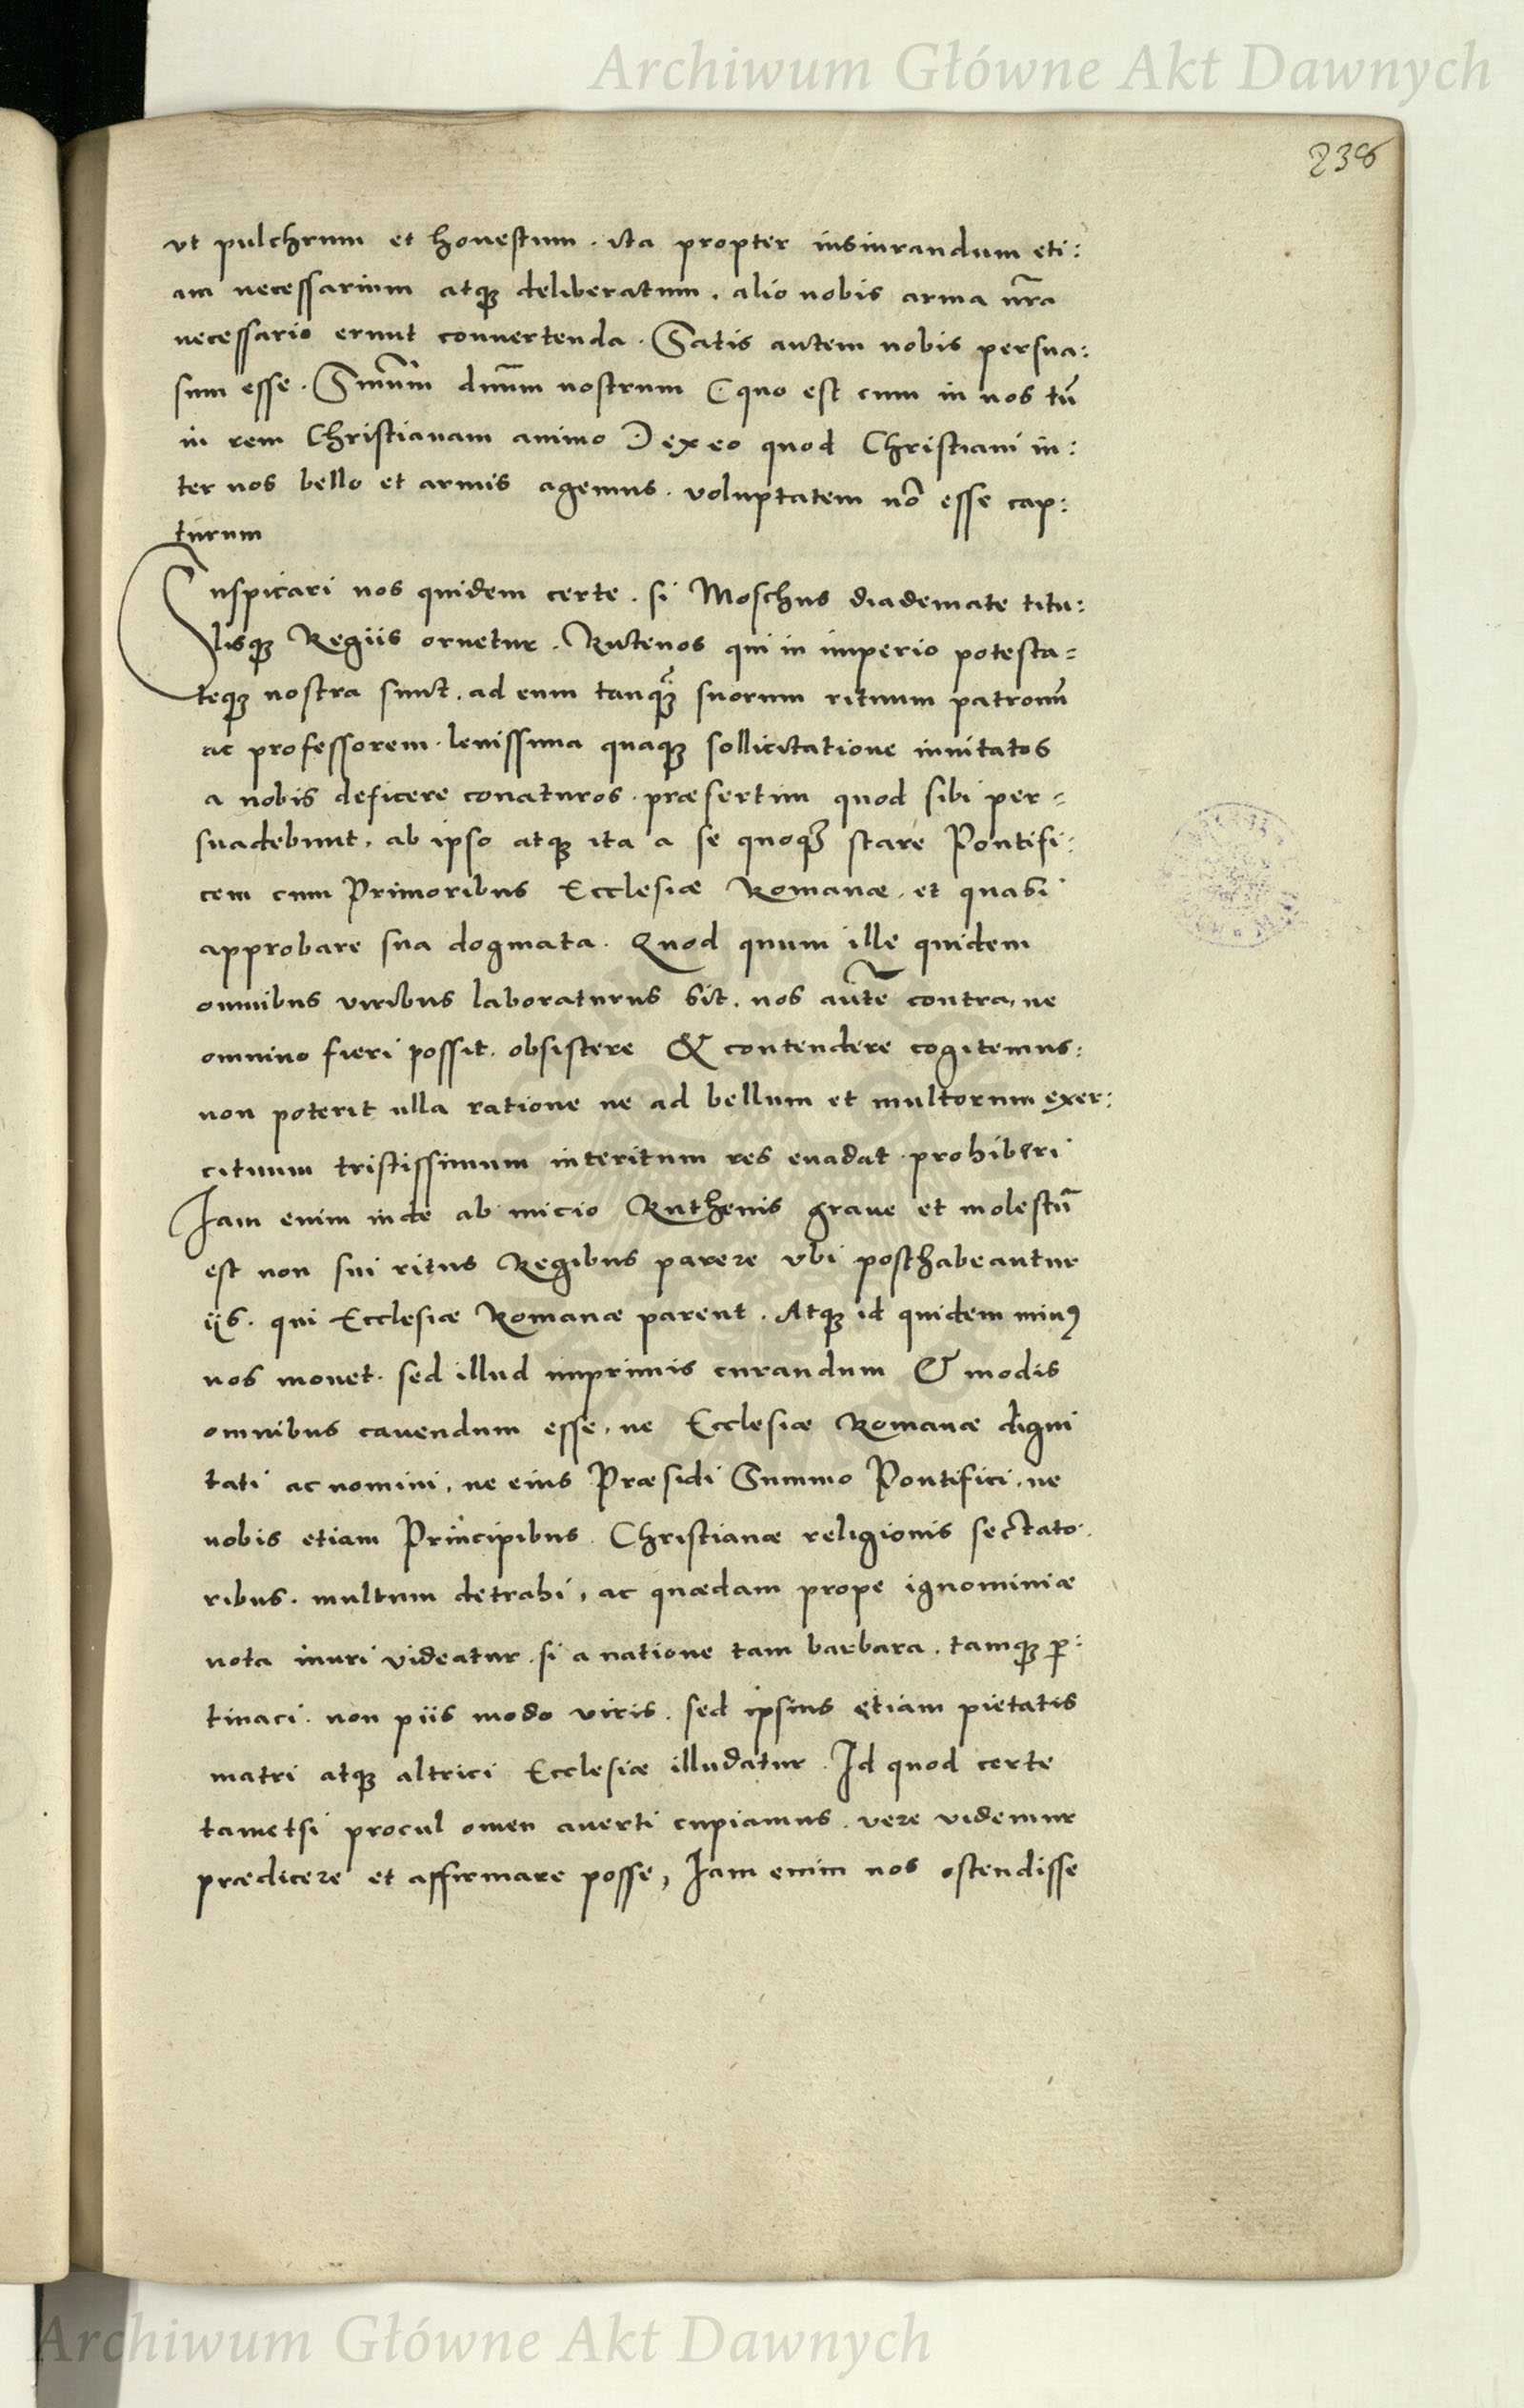 Archiwum Główne Akt Dawnych
238
vt pulchrum et honestum. ita propter iusiurandum eti:
am necessarium atqꝫ deliberatum, alio nobis arma nr̃a
necessario erunt conuertenda. Satis autem nobis persua:
sum esse. Smũm dnũm nostrum (quo est cum in nos tũ
in rem Christianam animo) ex eo quod Christiani in:
ter nos bello et armis agemus. voluptatem nõ esse cap:
turum
Suspicari nos quidem certe. si Moschus diademate titu:
lisqꝫ Regiis ornetur. Rutenos qui in imperio potesta=
teqꝫ nostra sunt, ad eum tanqꝫ̃ suorum rituum patronũ
ac professorem. leuissima quaqꝫ sollicitatione inuitatos
a nobis deficere conaturos. præsertim quod sibi per=
suadebunt, ab ipso atqꝫ ita a se quoqꝫ stare Pontifi:
cem cum Primoribus Ecclesiæ Romanæ. et quasi
approbare sua dogmata. Quod quum ille quidem
omnibus viribus laboraturus sit. nos aũte contra, ne
omnino fieri possit. obsistere & contendere cogitemus:
non poterit ulla ratione ne ad bellum et multorum exer:
cituum tristissimum interitum res euadat prohiberi
Iam enim inde ab inicio Ruthenis graue et molestũ
est non sui ritus Regibus parere vbi posthabeantur
iis. qui Ecclesiæ Romanæ parent. Atqꝫ id quidem minꝰ
nos mouet. sed illud imprimis curandum & modis
omnibus cauendum esse, ne Ecclesiæ Romanæ digni
tati ac nomini, ne eius Præsidi Summo Pontifici, ne
nobis etiam Principibus Christianæ religionis sectato.
ribus. multum detrahi, ac quædam prope ignominiæ
nota inuri videatur. si a natione tam barbara. tamqꝫ ꝑ:
tinaci. non piis modo viris. sed ipsius etiam pietatis
matri atqꝫ altrici Ecclesiæ illudatur. Id quod certe
tametsi procul omen auerti cupiamus. vere videmur
prædicere et affirmare posse, Iam enim nos ostendisse
Archiwum Główne Akt Dawnych